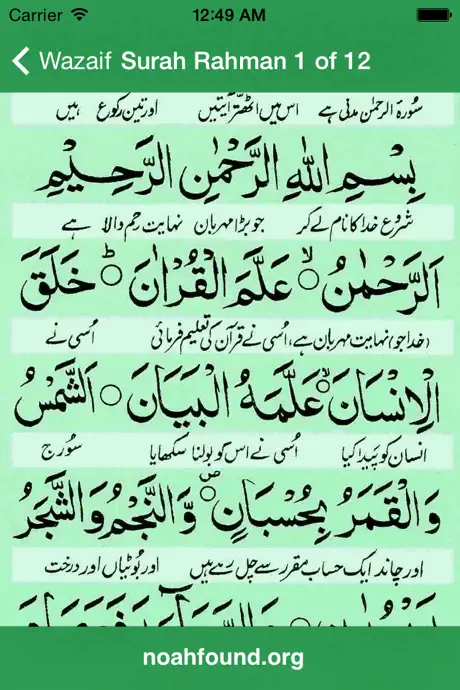 Carrier 12:49 AM
Wazaif Surah Rahman 1 of 12
سُورۃ الرحمٰن مدنی ہے اس میں اٹھتر آیتیں اور تین رکوع ہیں
بِسْمِ اللّٰهِ الرَّحْمٰنِ الرَّحِيْمِ
شروع خدا کا نام لے کر جو بڑا مہربان نہایت رحم والا ہے
اَلرَّحْمٰنُ ۙ عَلَّمَ الْقُرْاٰنَ ؕ خَلَقَ
(خدا جو) نہایت مہربان ہے، اُسی نے قرآن کی تعلیم فرمائی اُسی نے
الْاِنْسَانَ ۙ عَلَّمَهُ الْبَيَانَ ○ اَلشَّمْسُ
انسان کو پیدا کیا اُسی نے اس کو بولنا سکھایا سُورج
وَالْقَمَرُ بِحُسْبَانٍ ۪ وَّالنَّجْمُ وَالشَّجَرُ
اور چاند ایک حساب مقرر سے چل رہے ہیں اور بُوٹیاں اور درخت
noahfound.org